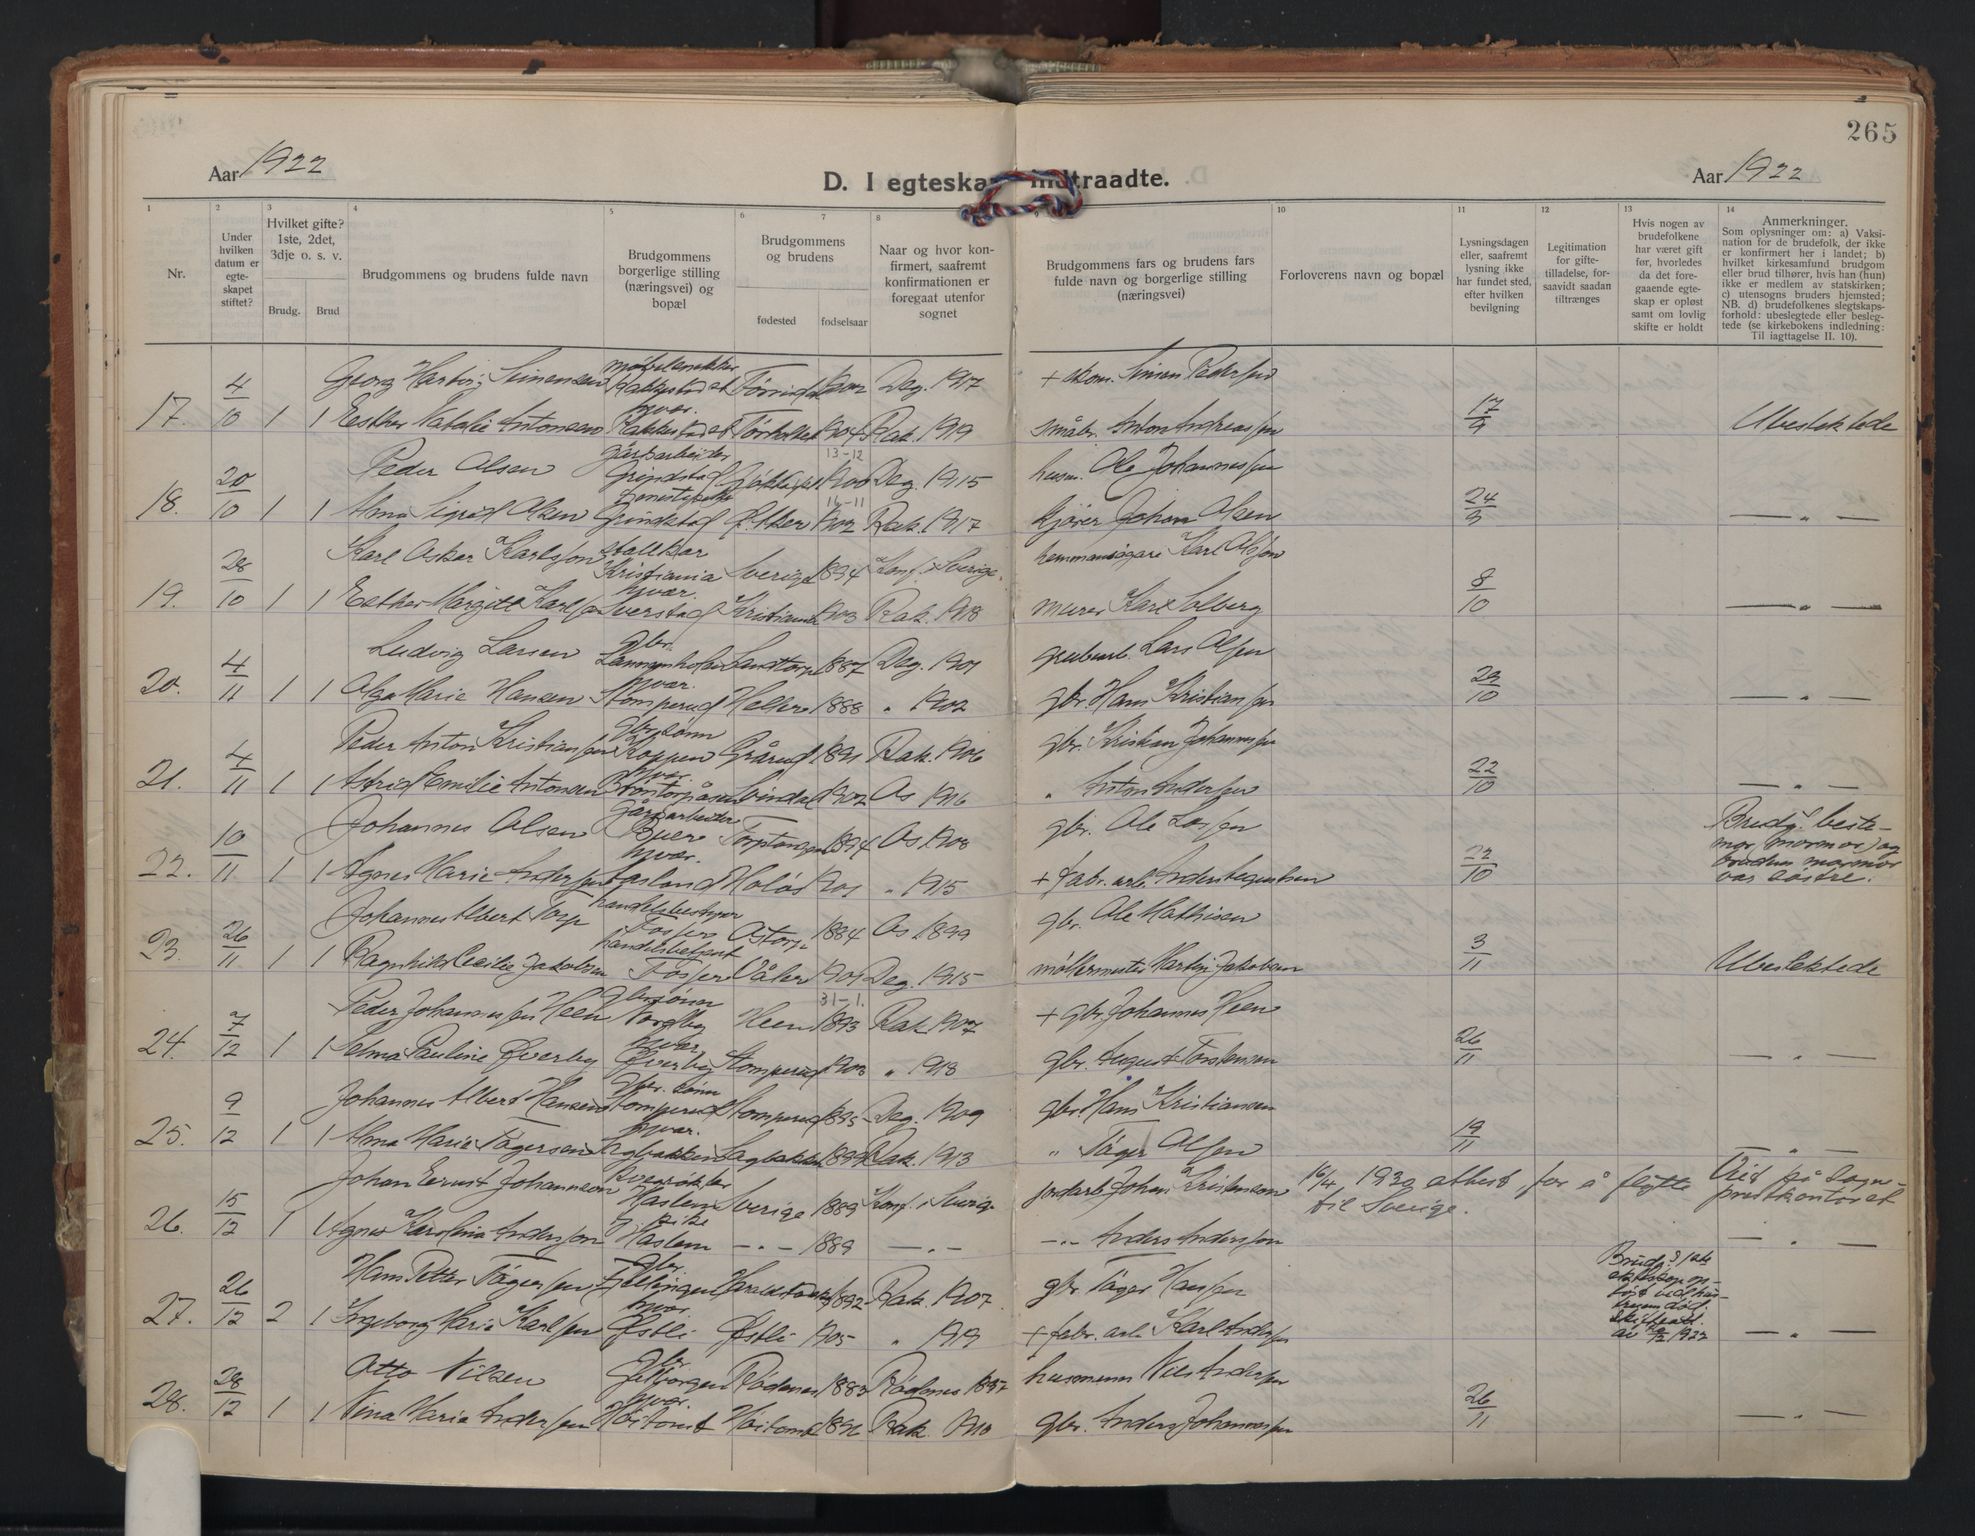 265
Aar 1922
D. I egteskap indtraadte.
Aar 1922
1 2 3 4 5 6 7 8 9 10 11 12 13 14
Nr.
Under hvilken datum er egteskapet stiftet?
Hvilket gifte? 1ste, 2det, 3dje o. s. v.
Brudg. Brud
Brudgommens og brudens fulde navn
Brudgommens borgerlige stilling (næringsvei) og bopæl
Brudgommens og brudens
fødested fødselsaar
Naar og hvor konfirmert, saafremt konfirmationen er foregaat utenfor sognet
Brudgommens fars og brudens fars fulde navn og borgerlige stilling (næringsvei)
Forloverens navn og bopæl
Lysningsdagen eller, saafremt lysning ikke har fundet sted, efter hvilken bevilgning
Legitimation for giftetilladelse, forsaavidt saadan tiltrænges
Hvis nogen av brudefolkene har været gift før, hvorledes da det foregaaende egteskap er opløst samt om lovlig skifte er holdt
Anmerkninger.
Som oplysninger om: a) Vaksination for de brudefolk, der ikke er konfirmert her i landet; b) hvilket kirkesamfund brudgom eller brud tilhører, hvis han (hun) ikke er medlem av statskirken; c) utensogns bruders hjemsted; NB. d) brudefolkenes slegtskapsforhold: ubeslegtede eller beslegtede (se kirkebokens indledning: Til iagttagelse II. 10).
Georg Hartvig Simensen møbelsnekker Rakkestad st 1902 Deg. 1917 + skom. Simen Pedersen
17. 4/10 1 1 Esther Natalie Antonsen hjvær. Rakkestad st 1904 Rak. 1919 småbr. Anton Andreassen 17/9 Ubeslektede
Peder Olsen gårdsarbeider Grindstad 13-12 1900 Deg. 1915 husm. Ole Johannessen
18. 20/10 1 1 Alma Sigrid Olsen Grindstad 16-11 1902 Rak. 1917 kjører Johan Olsen 24/9 — „ —
Karl Oskar Karlsson stallkar Kristiania Sverige 1894 Konf. i Sverige hemmansägare Karl Olsson
19. 28/10 1 1 Esther Margitt Karlsen hjvær. Sverstad Kristiania 1903 Rak. 1918 murer Karl Solberg 8/10 — „ —
Ludvig Larsen gbr. 1887 Deg. 1901 grubearb. Lars Olsen
20. 4/11 1 1 Olga Marie Hansen hjvær. Stomperud Heller 1888 „ 1902 gbr. Hans Kristiansen 23/10 — „ —
Peder Anton Kristiansen gbr.sønn Koppen Grårud 1891 Rak. 1906 gbr. Kristian Johannessen
21. 4/11 1 1 Astrid Emilie Antonsen hjvær. 1902 Os 1916 „ Anton Andersen 22/10 — „ —
Johannes Olsen gårdsarbeider Buer 1894 Os 1908 gbr. Ole Larsen
22. 10/11 1 1 Agnes Marie Andersen hjvær. 1901 „ 1915 + fabr. arb. 22/10 Brudg. bestemor (mormor) og brudens mormor var søstre.
Johannes Albert Torp handelsbestyrer Fosser Åstorp 1884 Os 1899 gbr. Ole Mathisen
23. 26/11 1 1 Ragnhild Cecilie Jakobsen handelsbetjent Fosser Våler 1901 Deg. 1915 møllermester Martin Jakobsen 3/11 Ubeslektede
Peder Johannessen Heen gbr.sønn Nordby Heen 31-1. 1893 Rak 1907 + gbr. Johannes Heen
24. 7/12 1 1 Selma Pauline Øverby hjvær. Øverby Stomperud 1903 „ 1918 gbr. August Torstensen 26/11 — „ —
Johannes Albert Hansen gbr. sønn Stomperud Stomperud 1895 Deg. 1909 gbr. Hans Kristiansen
25. 9/12 1 1 Alma Marie Fågersen hjvær. Sagbakken Sagbakken 1899 Rak. 1913 „ Tåger Olsen 19/11 — „ —
Johan Ernst Johansson Haslem Sverige 1889 Konf. i Sverige jordarb. Johan Kristensson 16/4 1930 attest for å flytte til Sverige. Vid på sogneprestkontoret
26. 15/12 1 1 Agnes Karolina Andersson Haslem — „ — 1889 — „ — — „ — Anders Andersson — „ —
Hans Petter Tågersen gbr. 1892 Rak. 1907. gbr. Tåger Hansen
27. 26/12 2 1 Ingeborg Marie Karlsen hjvær. Østli Østli 1905 „ 1919 + fabr. arb. Karl Andersen Brudg. ekteskap opløst ved hustruens død. Skifteatt. 1922 — „ —
Otto Nilsen gbr. Rødenes 1883 Rødenes 1897 husmann Nils Andersen
28. 28/12 1 1 Nina Marie Andersen hjvær. Høitomt Høitomt 1896 Rak. 1910 gbr. Anders Johannessen 26/11 — „ —